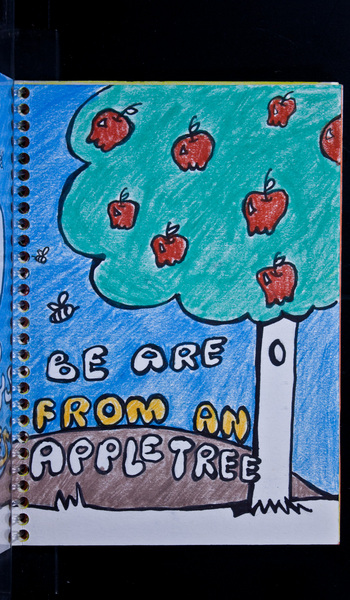 BE ARE
FROM AN
APPLE TREE